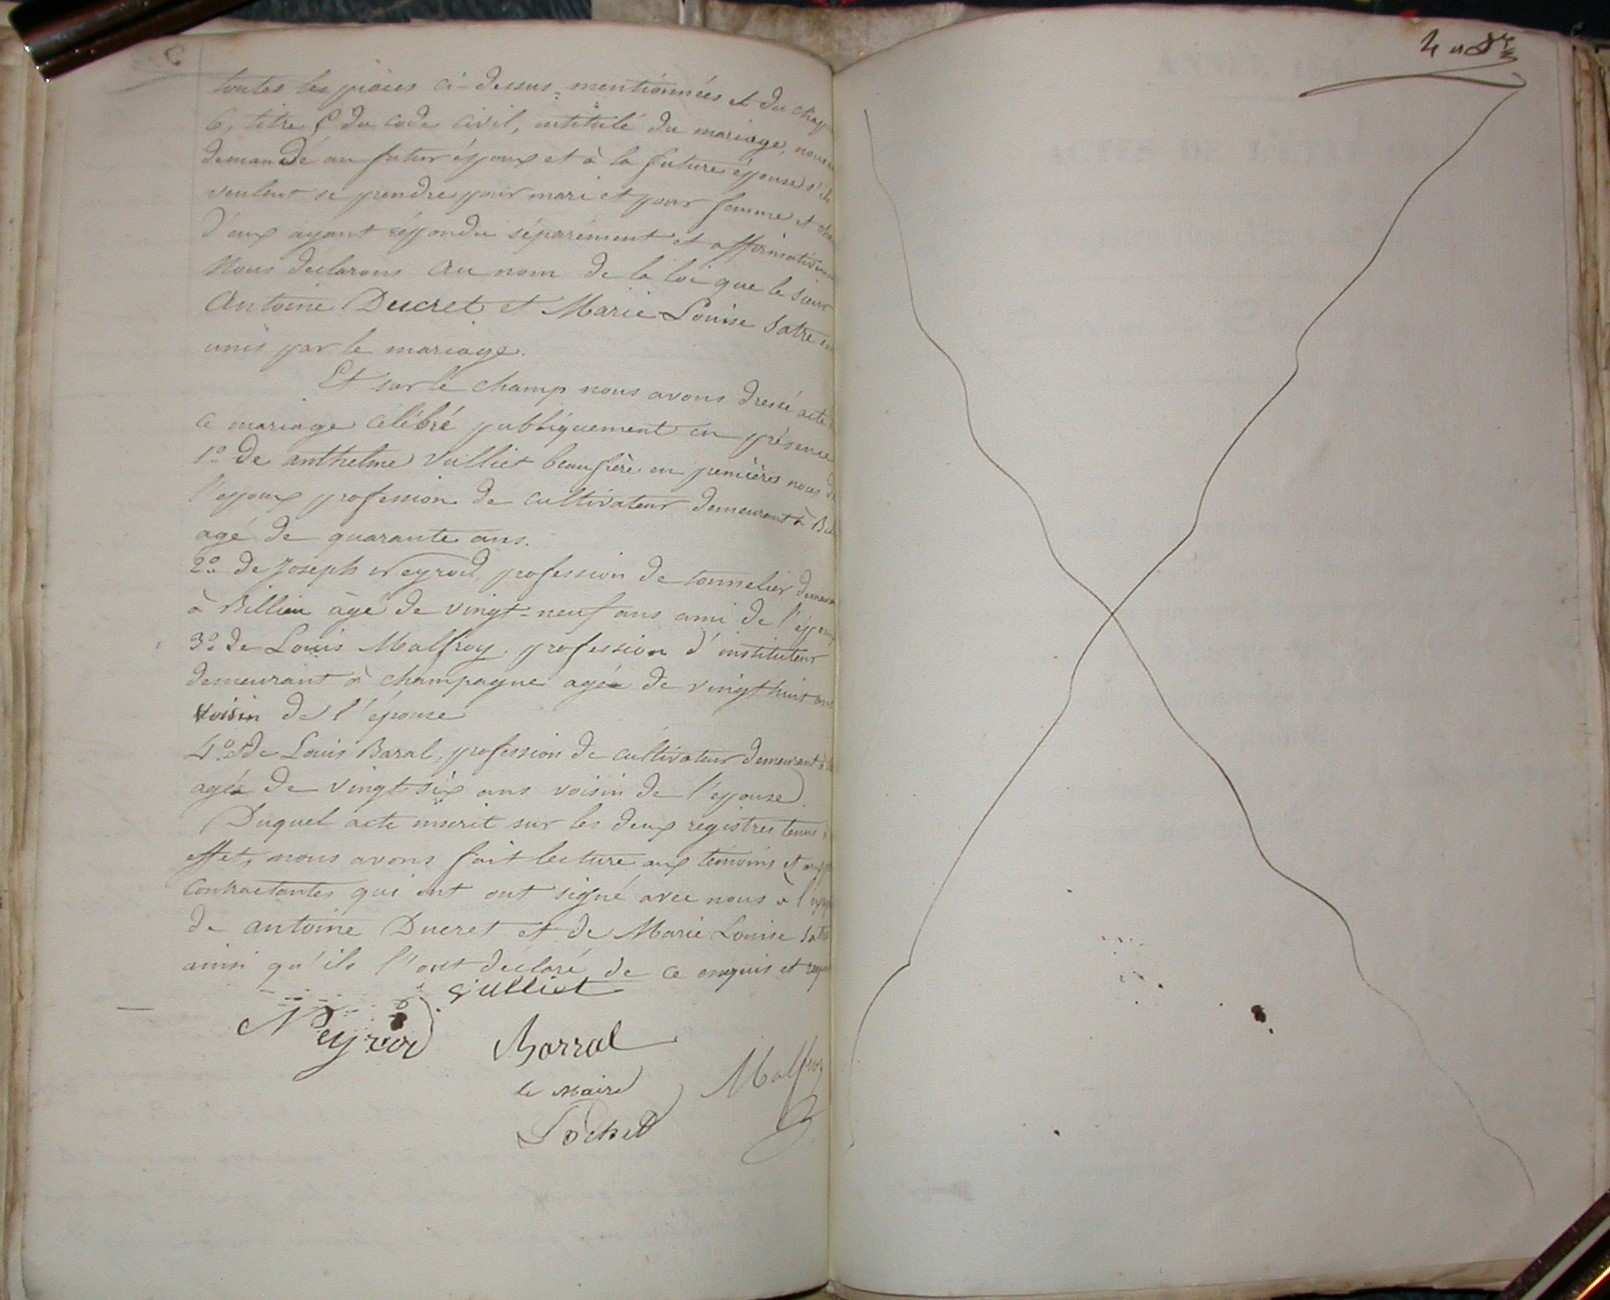 toutes les pièces ci-dessus mentionnées et du chap
6, titre 5 du code civil, intitulé du mariage, nous
demandé au futur époux et à la future épouse s'ils
veulent se prendre pour mari et pour femme et
d'eux ayant répondu séparément et affirmativem
Nous declarons au nom de la loi que le sieur
Antoine Ducret et Marie Louise Satre
unis par le mariage.
Et sur le champ nous avons dressé acte
ce mariage célébré publiquement en présence
1° de anthelme Vulliet beaufrère en premières noces de
l'epoux profession de cultivateur demeurant à
agé de quarante ans.
2° de Joseph Neyrod, profession de tonnelier
à Billieu âgé de vingt-neuf ans ami de
3° de Louis Malfroy, profession d'instituteur
demeurant à champagne agée de vingt huit ans
voisin de l'épouse
4° de Louis Baral, profession de cultivateur demeurant
agée de vingt six ans voisin de l'epouse.
Duquel acte inscrit sur les deux registres tenus
effet, nous avons fait lecture aux témoins et
contractantes qui ont ont signé avec nous à
de antoine Ducret et de Marie Louise Satre
ainsi qu'ils l'ont déclaré de ce enquis et
Vulliet
Neyrod
Barral
Malfroy
le Maire